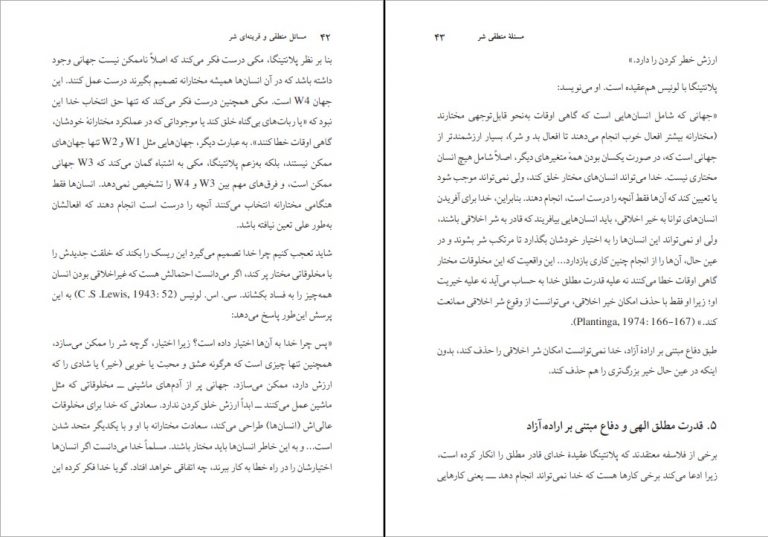 ۴۲ مسائل منطقی و قرینه‌ای شر
بنا بر نظر پلانتینگا، مکی درست فکر می‌کند که اصلاً ناممکن نیست جهانی وجود
داشته باشد که در آن انسان‌ها همیشه مختارانه تصمیم بگیرند درست عمل کنند. این
جهان W4 است. مکی همچنین درست فکر می‌کند که تنها حق انتخاب خدا این
نبود که «یا ربات‌های بی‌گناه خلق کند یا موجوداتی که در عملکرد مختارانهٔ خودشان،
گاهی اوقات خطا کنند». به عبارت دیگر، جهان‌هایی مثل W1 و W2 تنها جهان‌های
ممکن نیستند، بلکه به‌زعم پلانتینگا، مکی به اشتباه گمان می‌کند که W3 جهانی
ممکن است، و فرق‌های مهم بین W3 و W4 را تشخیص نمی‌دهد. انسان‌ها فقط
هنگامی مختارانه انتخاب می‌کنند آنچه را درست است انجام دهند که افعالشان
به‌طور علی تعین نیافته باشد.
شاید تعجب کنیم چرا خدا تصمیم می‌گیرد این ریسک را بکند که خلقت جدیدش را
با مخلوقاتی مختار پر کند، اگر می‌دانست احتمالش هست که غیراخلاقی بودن انسان
همه‌چیز را به فساد بکشاند. سی. اس. لوئیس (C .S .Lewis, 1943: 52) به این
پرسش این‌طور پاسخ می‌دهد:
«پس چرا خدا به آن‌ها اختیار داده است؟ زیرا اختیار، گرچه شر را ممکن می‌سازد،
همچنین تنها چیزی است که هرگونه عشق و محبت یا خوبی (خیر) یا شادی را که
ارزش دارد، ممکن می‌سازد. جهانی پر از آدم‌های ماشینی ــ مخلوقاتی که مثل
ماشین عمل می‌کنند ــ ابداً ارزش خلق کردن ندارد. سعادتی که خدا برای مخلوقات
عالی‌اش (انسان‌ها) طراحی می‌کند، سعادت مختارانه با او و با یکدیگر متحد شدن
است... و به این خاطر انسان‌ها باید مختار باشند. مسلماً خدا می‌دانست اگر انسان‌ها
اختیارشان را در راه خطا به کار ببرند، چه اتفاقی خواهد افتاد. گویا خدا فکر کرده این
مسئلهٔ منطقی شر ۴۳
ارزش خطر کردن را دارد.»
پلانتینگا با لوئیس هم‌عقیده است. او می‌نویسد:
«جهانی که شامل انسان‌هایی است که گاهی اوقات به‌نحو قابل‌توجهی مختارند
(مختارانه بیشتر افعال خوب انجام می‌دهند تا افعال بد و شر)، بسیار ارزشمندتر از
جهانی است که، در صورت یکسان بودن همهٔ متغیرهای دیگر، اصلاً شامل هیچ انسان
مختاری نیست. خدا می‌تواند انسان‌های مختار خلق کند، ولی نمی‌تواند موجب شود
یا تعیین کند که آن‌ها فقط آنچه را درست است، انجام دهند. بنابراین، خدا برای آفریدن
انسان‌های توانا به خیر اخلاقی، باید انسان‌هایی بیافریند که قادر به شر اخلاقی باشند،
ولی او نمی‌تواند این انسان‌ها را به اختیار خودشان بگذارد تا مرتکب شر بشوند و در
عین حال، آن‌ها را از انجام چنین کاری بازدارد... این واقعیت که این مخلوقات مختار
گاهی اوقات خطا می‌کنند نه علیه قدرت مطلق خدا به حساب می‌آید نه علیه خیریت
او؛ زیرا او فقط با حذف امکان خیر اخلاقی، می‌توانست از وقوع شر اخلاقی ممانعت
کند.» (Plantinga, 1974: 166-167).
طبق دفاع مبتنی بر ارادهٔ آزاد، خدا نمی‌توانست امکان شر اخلاقی را حذف کند، بدون
اینکه در عین حال خیر بزرگ‌تری را هم حذف کند.
۵. قدرت مطلق الهی و دفاع مبتنی بر اراده‌آزاد
برخی از فلاسفه معتقدند که پلانتینگا عقیدهٔ خدای قادر مطلق را انکار کرده است،
زیرا ادعا می‌کند برخی کارها هست که خدا نمی‌تواند انجام دهد ــ یعنی کارهایی